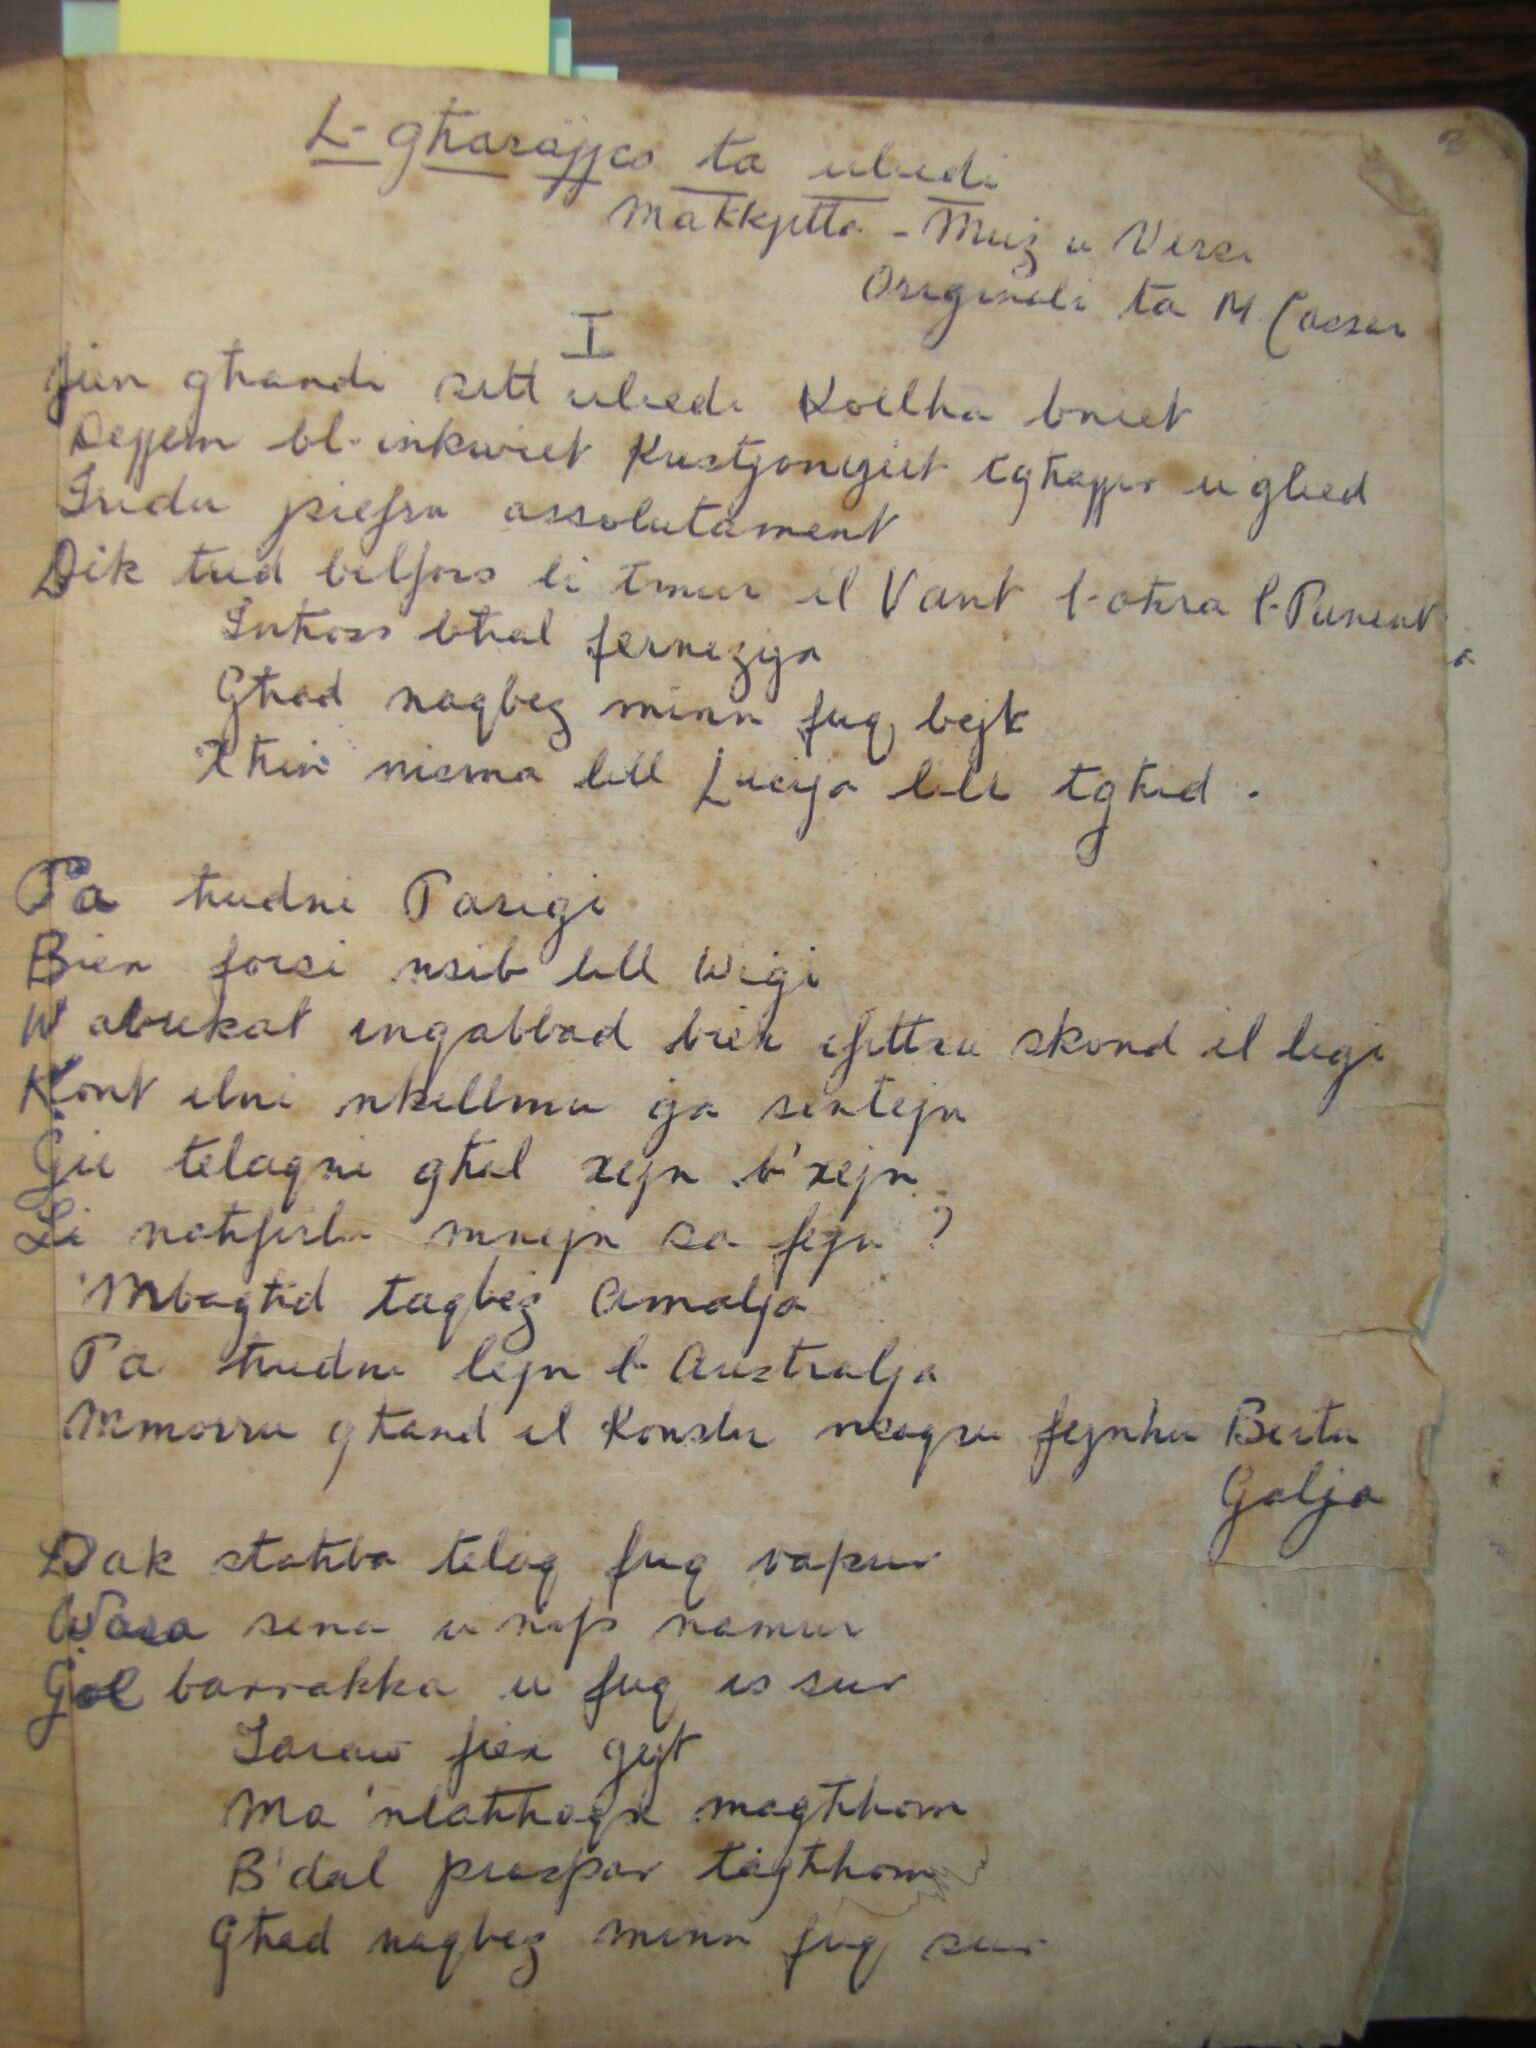 L-Għarajjes ta uliedi
Makkjetta - Muż u Versi
Originali ta M. Cassar
I
Jien għandi sitt uliedi Kollha bniet
Dejjem bl-inkwiet Kustjonijiet tgħajjir u glied
Iridu jiefsu assolutament
Dik trid bilfors li tmur il Vant l-oħra l-Punent
Inħoss bħal fernezija
Għad naqbez minn fuq bejt
Xħin nisma lill Lucija lili tgħid .
Pa ħudni Parigi
Bien forsi nsib lill Wigi
W abukat ingabbad biex ifittxu skond il ligi
Kont ilni nkellmu ġa sentejn
Ġie telaqni għal xejn b'xejn
Li naħfirlu mnejn sa fejn ?
'Mbagħd taqbeż Amalja
Pa ħudni lejn l-Australja
Mmorru għand il Konslu nsaqsu fejnhu Bertu
Galja
Dak staħba telaq fuq vapur
Wara sena u nofs namur
Ġol barrakka u fuq is sur
Iaraw fiex ġejt
Ma 'nlaħħaqx magħhom
B'dal pruspar tagħhom
Għad naqbeż minn fuq sur